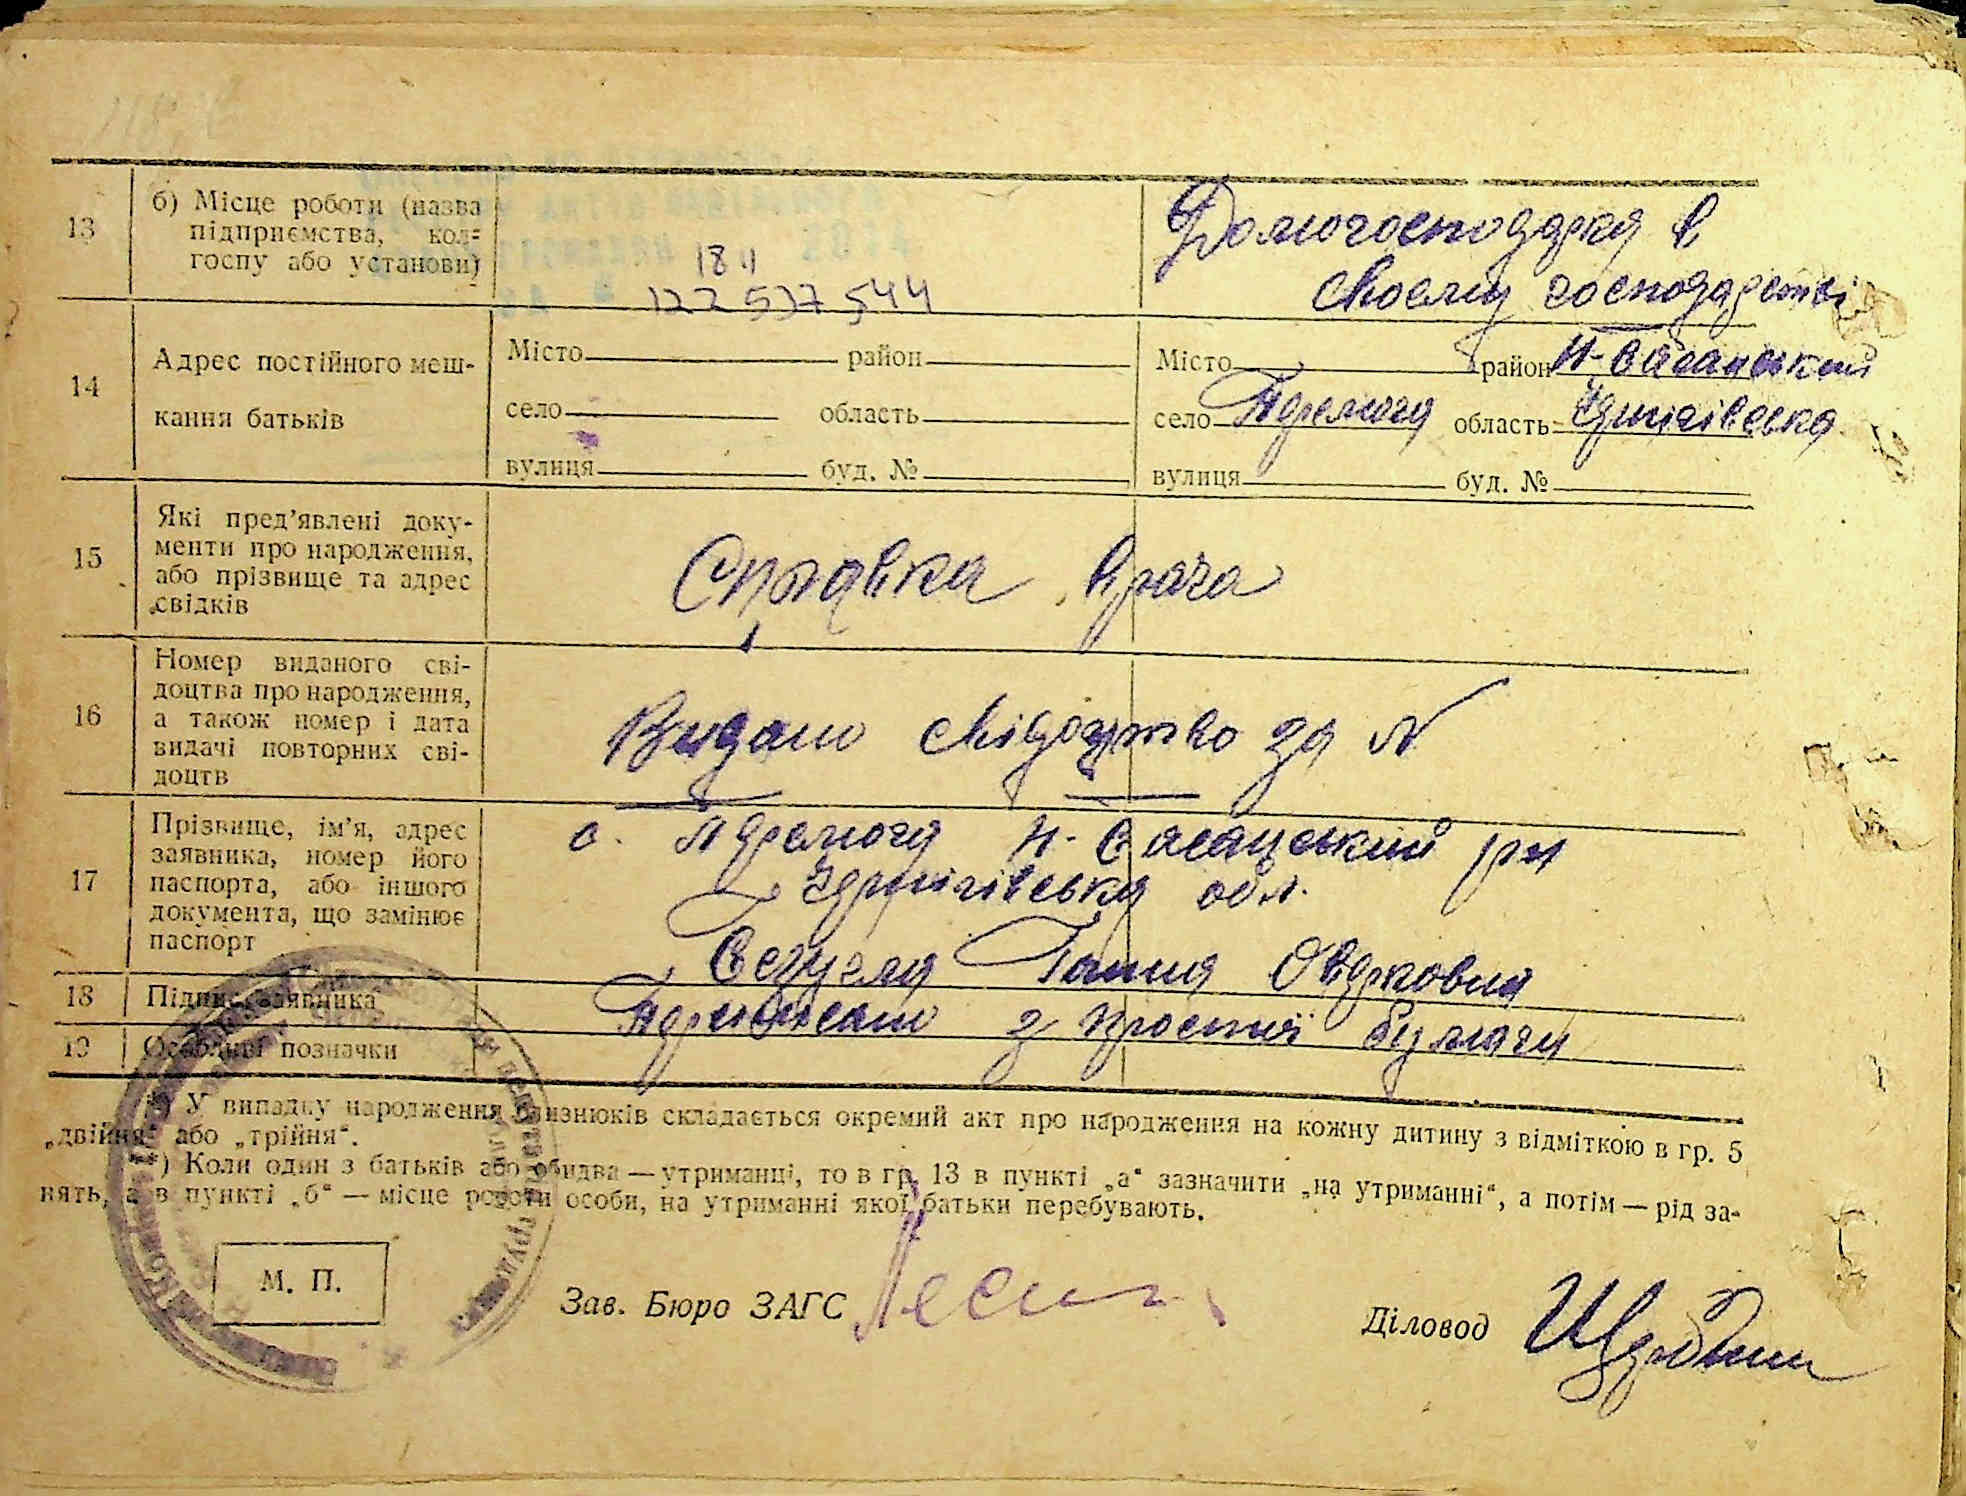 13
б) Місце роботи (назва
підприємства, кол-
госпу або установи)
18
122 537 544
Домогосподарка в
своєму господарстві
14
Адрес постійного меш-
кання батьків
Місто район
село область
вулиця буд. №
Місто район Н-Басанський
село Перемога область Чернігівська
вулиця буд. №
15
Які пред’явлені доку-
менти про народження,
або прізвище та адрес
свідків
Справка врача
16
Номер виданого сві-
доцтва про народження,
а також номер і дата
видачі повторних сві-
доцтв
Видано свідоцтво за N
17
Прізвище, ім’я, адрес
заявника, номер його
паспорта, або іншого
документа, що замінює
паспорт
с. Перемога Н-Басанський р-н
Чернігівська обл.
Ганна
18
Підпис заявника
19
Особливі позначки
Переписано з простої бумаги
*) У випадку народження близнюків складається окремий акт про народження на кожну дитину з відміткою в гр. 5
„двійня“ або „трійня“.
**) Коли один з батьків або обидва — утриманці, то в гр. 13 в пункті „а“ зазначити „на утриманні“, а потім — рід за-
нять, а в пункті „б“ — місце роботи особи, на утриманні якої батьки перебувають.
М. П.
Зав. Бюро ЗАГС
Діловод